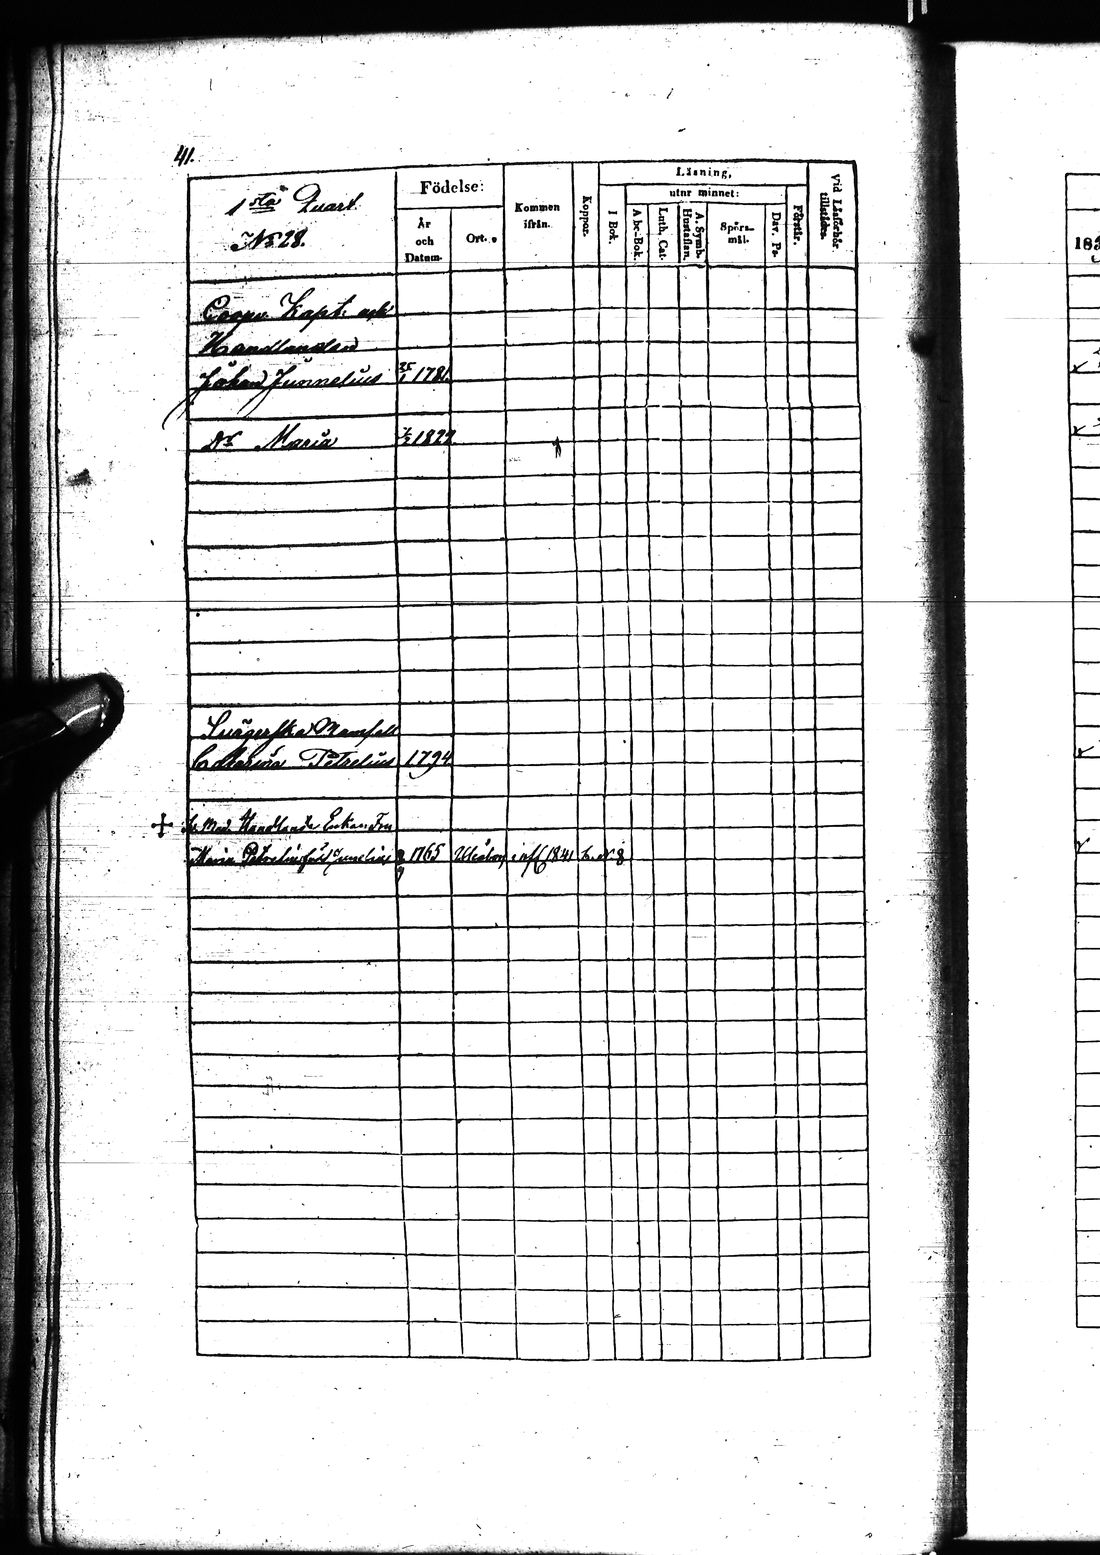 41.
1sta Quart.
No 28.
Födelse:
År
och
Datum.
Ort.
Kommen
ifrån.
Koppor.
Läsning,
utur minnet:
I Bok.
Abc-Bok.
Luth. Cat.
A. Symb.
Hustaflan.
Spörs-
mål.
Dav. Ps.
Förstår.
Vid Läsförhör
tillstädes.
183
Coopv Kapt. och
Handlanden
Johan Junnelius 1781
Dr Maria 1822
Svägerska Mamsell
Catharina Petrelius 1794
Handlande Enkan Fru
Maria Petrelius född Junnelius 1765 1841 No 8